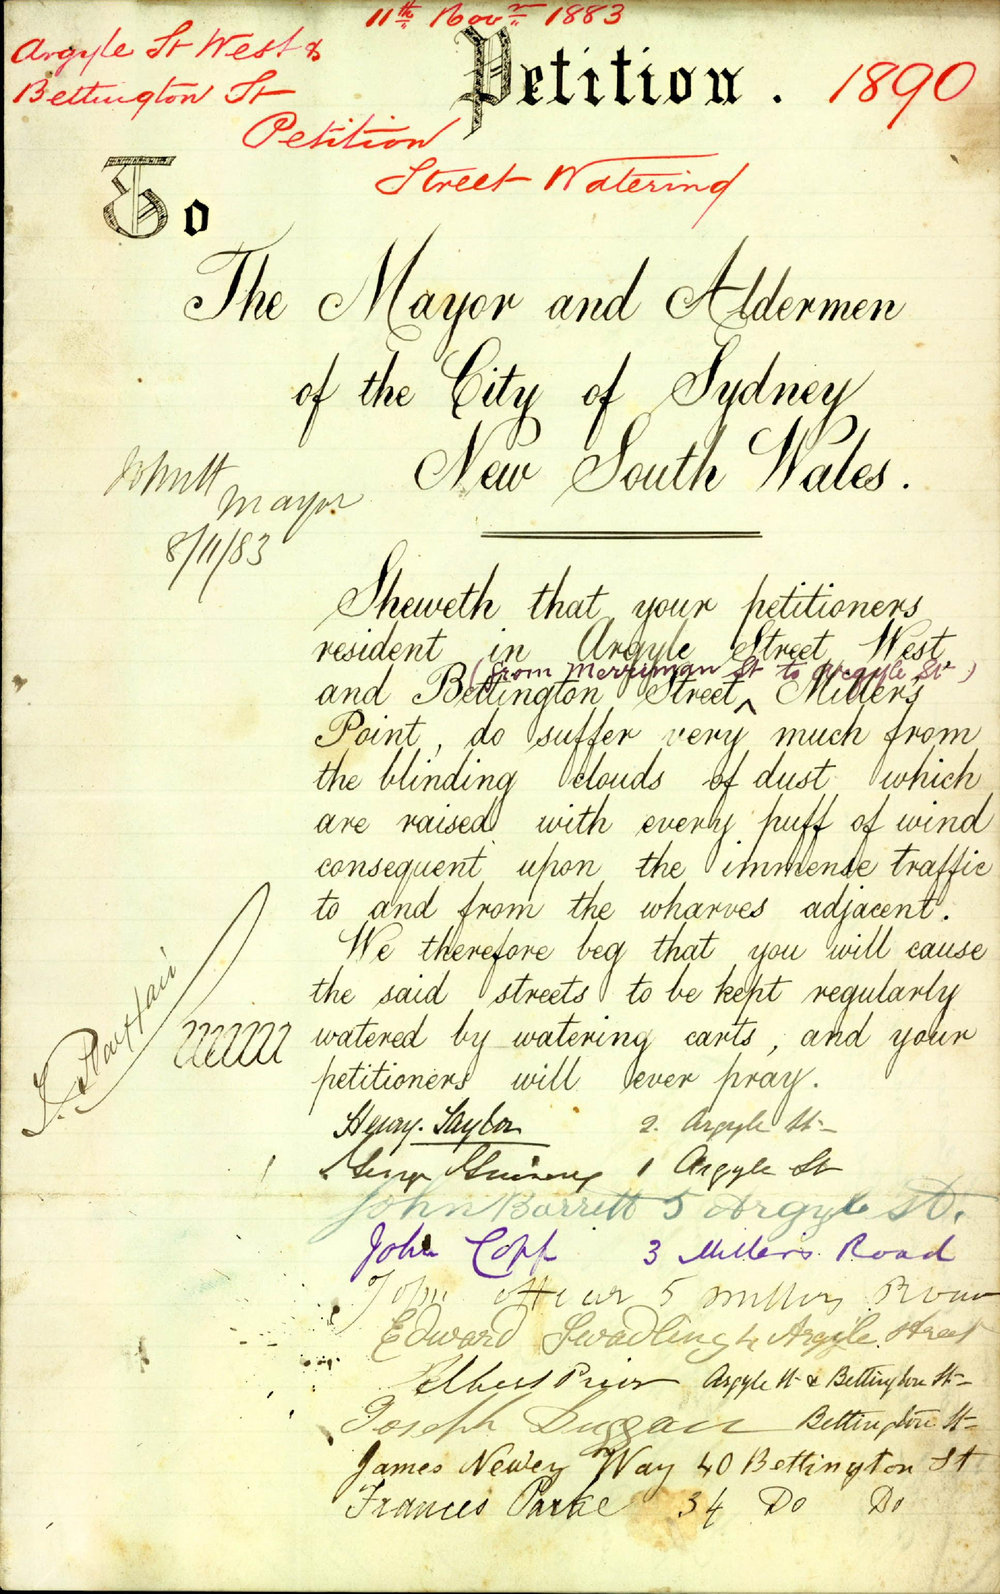 11th Novr 1883
Argyle St West &
Bettington St
Petition
Street Watering
Petition.
1890
To
The Mayor and Aldermen
of the City of Sydney
New South Wales.
Mayor
8/11/83
Sheweth that your petitioners
resident in Argyle Street West
(from Merriman St to Argyle St)
and Bettington Street ‸ Miller's
Point, do suffer very much from
the blinding clouds of dust which
are raised with every puff of wind
consequent upon the immense traffic
to and from the wharves adjacent.
We therefore beg that you will cause
the said streets to be kept regularly
watered by watering carts, and your
petitioners will ever pray.
Henry Taylor 2 Argyle St
1 Argyle St
John Barritt 5 Argyle St.
John Copp 3 Millers Road
John 5
Edward Swadling 4 Argyle Street
Albert Prior Argyle St & Bettington St
Joseph Duggan Bettington St
James Newey Way 40 Bettington St
Frances Parke 34 Do Do